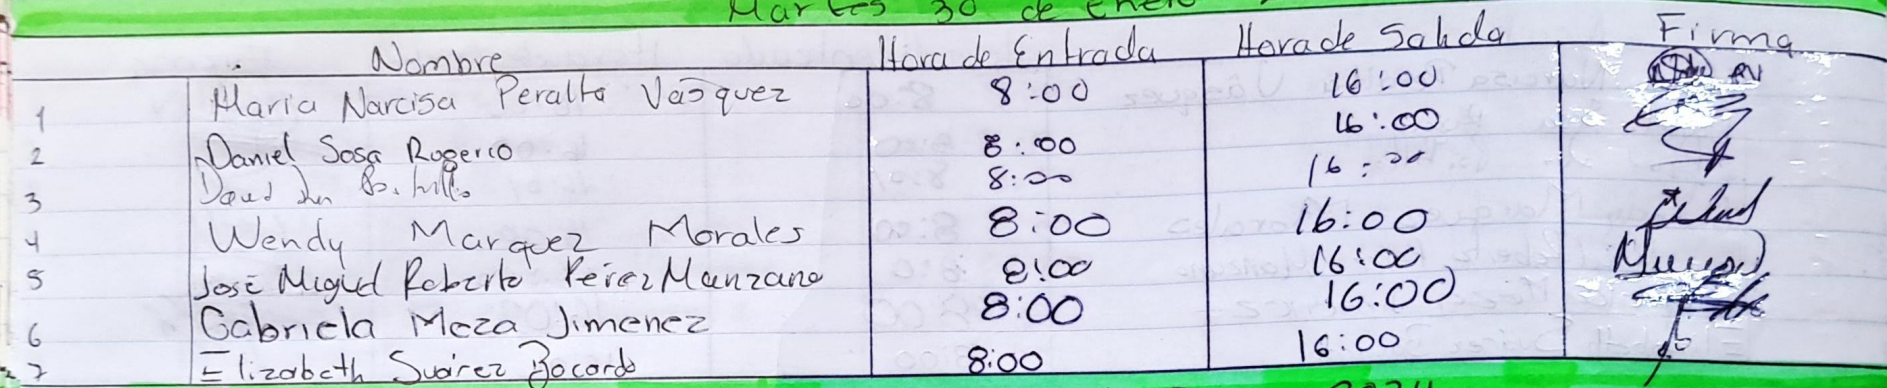 Martes 30 de enero
Nombre Hora de Entrada Hora de Salida Firma
1 Maria Narcisa Peralta Vásquez 8:00 16:00
2 Daniel Sosa Rogerio 8:00 16:00
3 8:00 16:00
4 Wendy Marquez Morales 8:00 16:00
5 José Miguel Roberto Pérez Manzano 8:00 16:00
6 Gabriela Meza Jimenez 8:00 16:00
7 Elizabeth Suárez Bocardo 8:00 16:00